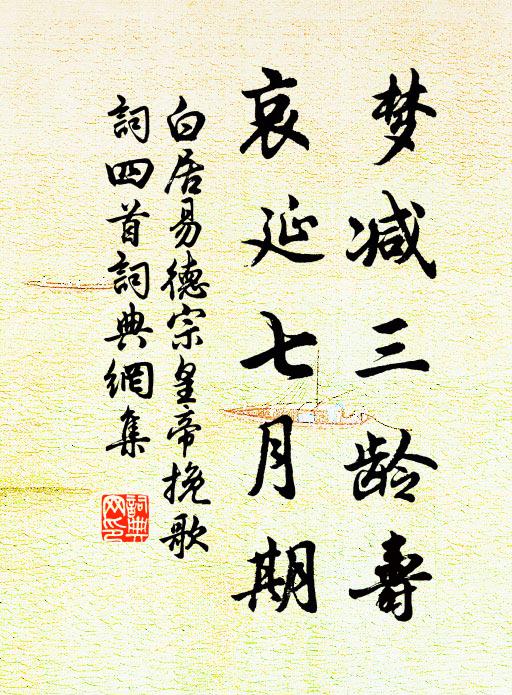 梦减三龄寿
哀延七月期
白居易德宗皇帝挽歌
詞四首詞典網集
詞典
网印